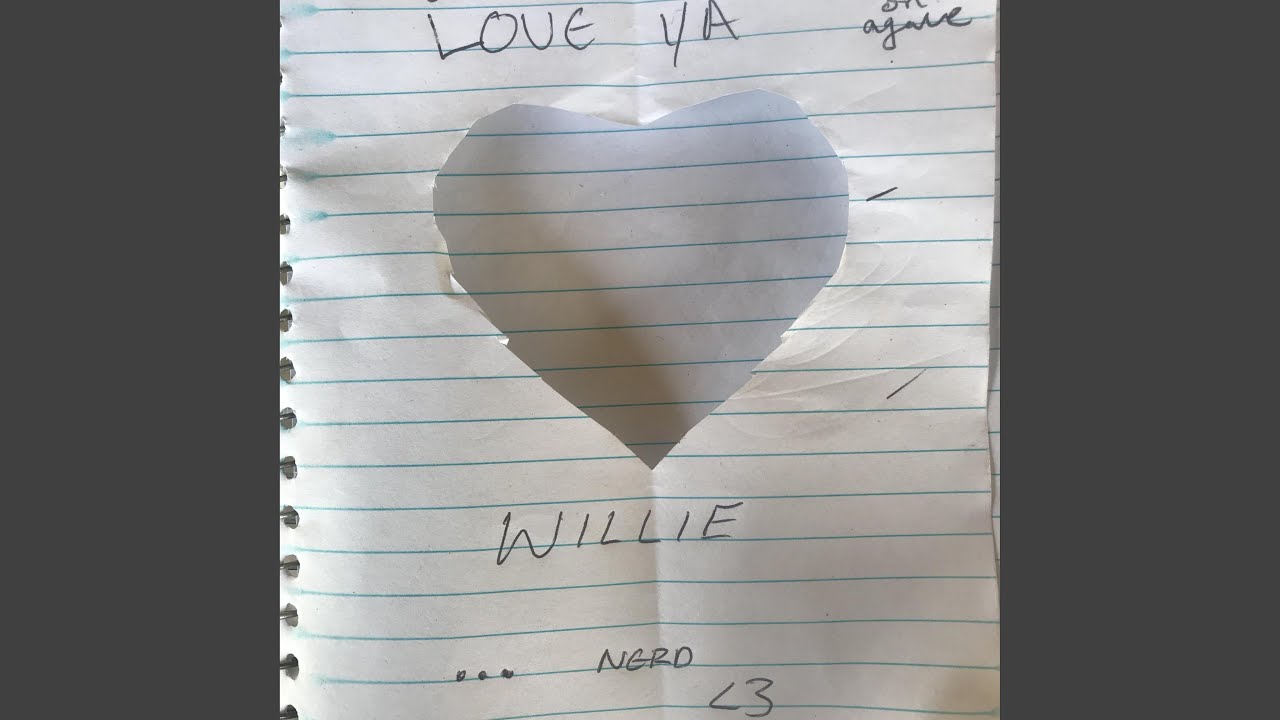 LOVE YA
agave
WILLIE
... NERD
<3